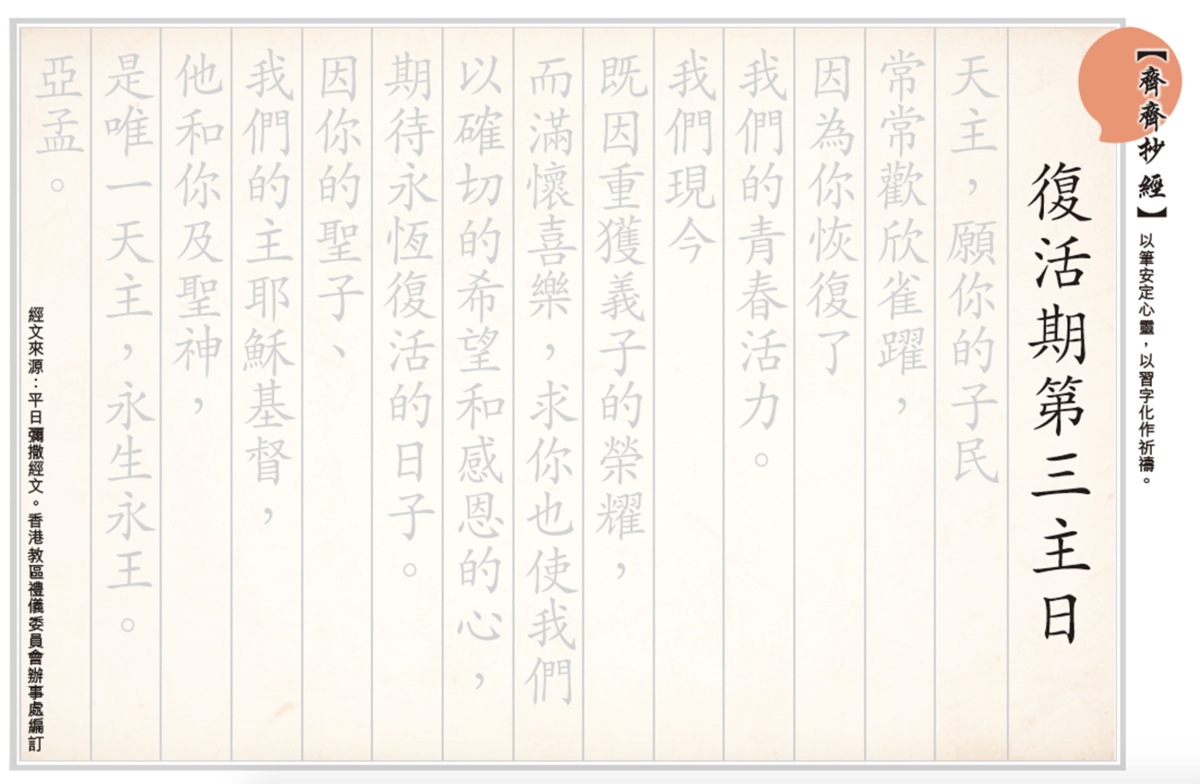 【齊齊抄經】以筆安定心靈，以習字化作祈禱。
復活期第三主日
天主，願你的子民
常常歡欣雀躍，
因為你恢復了
我們的青春活力。
我們現今
既因重獲義子的榮耀，
而滿懷喜樂，求你也使我們
以確切的希望和感恩的心，
期待永恆復活的日子。
因你的聖子、
我們的主耶穌基督，
他和你及聖神，
是唯一天主，永生永王。
亞孟。
經文來源：平日彌撒經文。香港教區禮儀委員會辦事處編訂